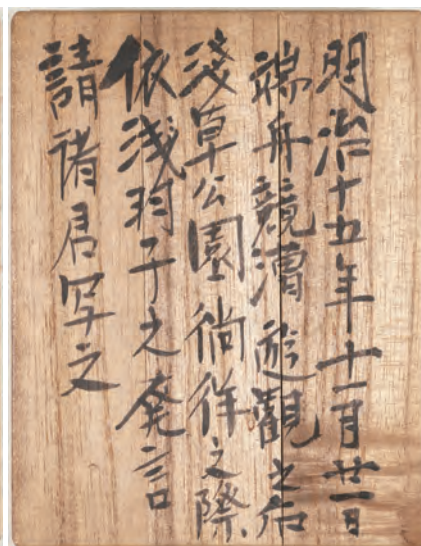 明治十五年十一月廿一日
端舟競漕遊觀之後
淺草公園徜徉之際
依淺羽子之発言
請諸君写之